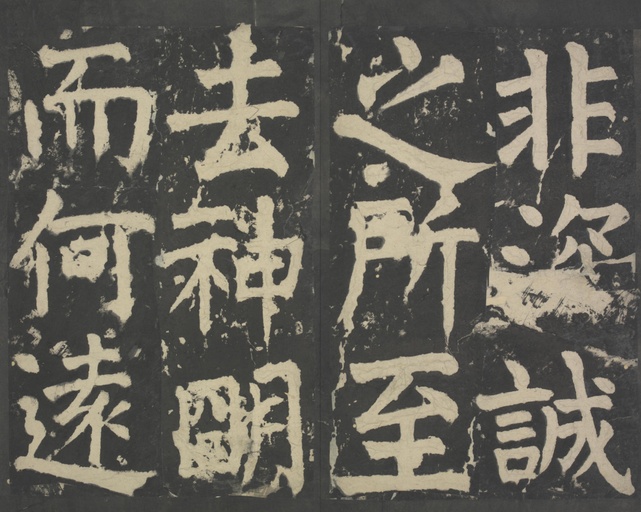 非誠
之所至
去神明
而何遠